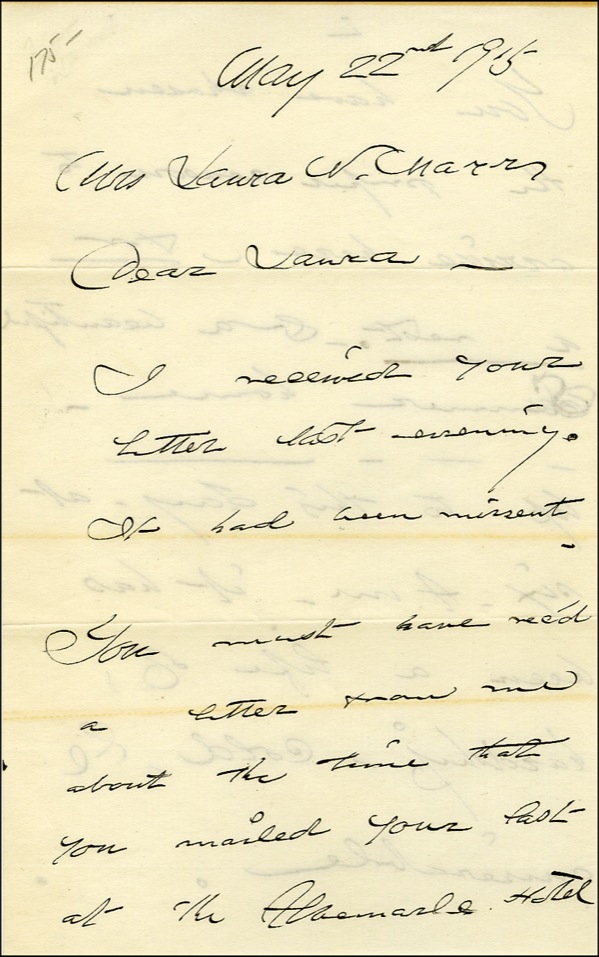 175-
May 22nd 1915
Mrs Laura N. Marrs
Dear Laura -
I received your
letter last evening.
It had been missent -
You must have rec'd
a letter from me
about the time that
you mailed your last
at the Albemarle Hotel